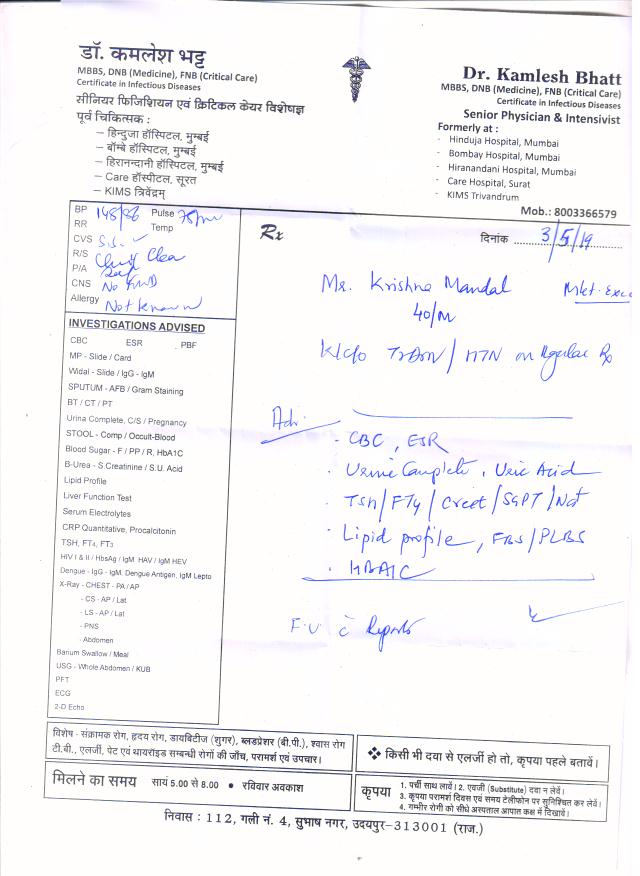 डॉ. कमलेश भट्ट
MBBS, DNB (Medicine), FNB (Critical Care)
Certificate in Infectious Diseases
सीनियर फिजिशियन एवं क्रिटिकल केयर विशेषज्ञ
पूर्व चिकित्सक :
– हिन्दुजा हॉस्पिटल, मुम्बई
– बॉम्बे हॉस्पिटल, मुम्बई
– हिरानन्दानी हॉस्पिटल, मुम्बई
– Care हॉस्पीटल, सूरत
– KIMS त्रिवेंद्रम्
Dr. Kamlesh Bhatt
MBBS, DNB (Medicine), FNB (Critical Care)
Certificate in Infectious Diseases
Senior Physician & Intensivist
Formerly at :
- Hinduja Hospital, Mumbai
- Bombay Hospital, Mumbai
- Hiranandani Hospital, Mumbai
- Care Hospital, Surat
- KIMS Trivandrum
Mob.: 8003366579
BP 148/86 Pulse 78/m
RR Temp
CVS S.S.
R/S Chest Clear
P/A Soft
CNS No FND
Allergy Not known
INVESTIGATIONS ADVISED
CBC ESR PBF
MP - Slide / Card
Widal - Slide / IgG - IgM
SPUTUM - AFB / Gram Staining
BT / CT / PT
Urina Complete, C/S / Pregnancy
STOOL - Comp / Occult-Blood
Blood Sugar - F / PP / R, HbA1C
B-Urea - S.Creatinine / S.U. Acid
Lipid Profile
Liver Function Test
Serum Electrolytes
CRP Quantitative, Procalcitonin
TSH, FT4, FT3
HIV I & II / HbsAg / IgM HAV / IgM HEV
Dengue - IgG - IgM, Dengue Antigen, IgM Lepto
X-Ray - CHEST - PA / AP
- CS - AP / Lat
- LS - AP / Lat
- PNS
- Abdomen
Barium Swallow / Meal
USG - Whole Abdomen / KUB
PFT
ECG
2-D Echo
Rx
दिनांक 3/5/19
Mr. Krishna Mandal
40/m
K/c/o T2DM / HTN on Regular Rx
Adv.
- CBC, ESR
- Urine Complete, Uric Acid
- TSH / FT4 / Creat / SGPT / Na+
- Lipid profile, FBS / PLBS
- HBA1C
F.U. c̄ Reports
विशेष - संक्रामक रोग, हृदय रोग, डायबिटीज (शुगर), ब्लडप्रेशर (बी.पी.), श्वास रोग
टी.बी., एलर्जी, पेट एवं थायरॉइड सम्बन्धी रोगों की जाँच, परामर्श एवं उपचार।
❖ किसी भी दवा से एलर्जी हो तो, कृपया पहले बतावें।
मिलने का समय सायं 5.00 से 8.00 • रविवार अवकाश
कृपया
1. पर्ची साथ लावें। 2. एवजी (Substitute) दवा न लेवें।
3. कृपया परामर्श दिवस एवं समय टेलीफोन पर सुनिश्चित कर लेवें।
4. गम्भीर रोगी को सीधे अस्पताल आपात कक्ष में दिखावें।
निवास : 112, गली नं. 4, सुभाष नगर, उदयपुर-313001 (राज.)